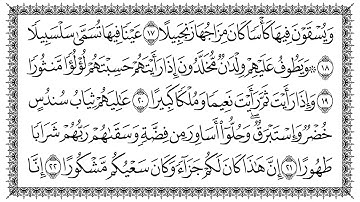 وَيُسْقَوْنَ فِيهَا كَأْسًا كَانَ مِزَاجُهَا زَنجَبِيلًا ١٧ عَيْنًا فِيهَا تُسَمَّىٰ سَلْسَبِيلًا
١٨ ۞ وَيَطُوفُ عَلَيْهِمْ وِلْدَٰنٌ مُّخَلَّدُونَ إِذَا رَأَيْتَهُمْ حَسِبْتَهُمْ لُؤْلُؤًا مَّنثُورًا
١٩ وَإِذَا رَأَيْتَ ثَمَّ رَأَيْتَ نَعِيمًا وَمُلْكًا كَبِيرًا ٢٠ عَٰلِيَهُمْ ثِيَابُ سُندُسٍ
خُضْرٌ وَإِسْتَبْرَقٌ ۖ وَحُلُّوٓا۟ أَسَاوِرَ مِن فِضَّةٍ وَسَقَىٰهُمْ رَبُّهُمْ شَرَابًا
طَهُورًا ٢١ إِنَّ هَٰذَا كَانَ لَكُمْ جَزَآءً وَكَانَ سَعْيُكُم مَّشْكُورًا ٢٢ إِنَّا